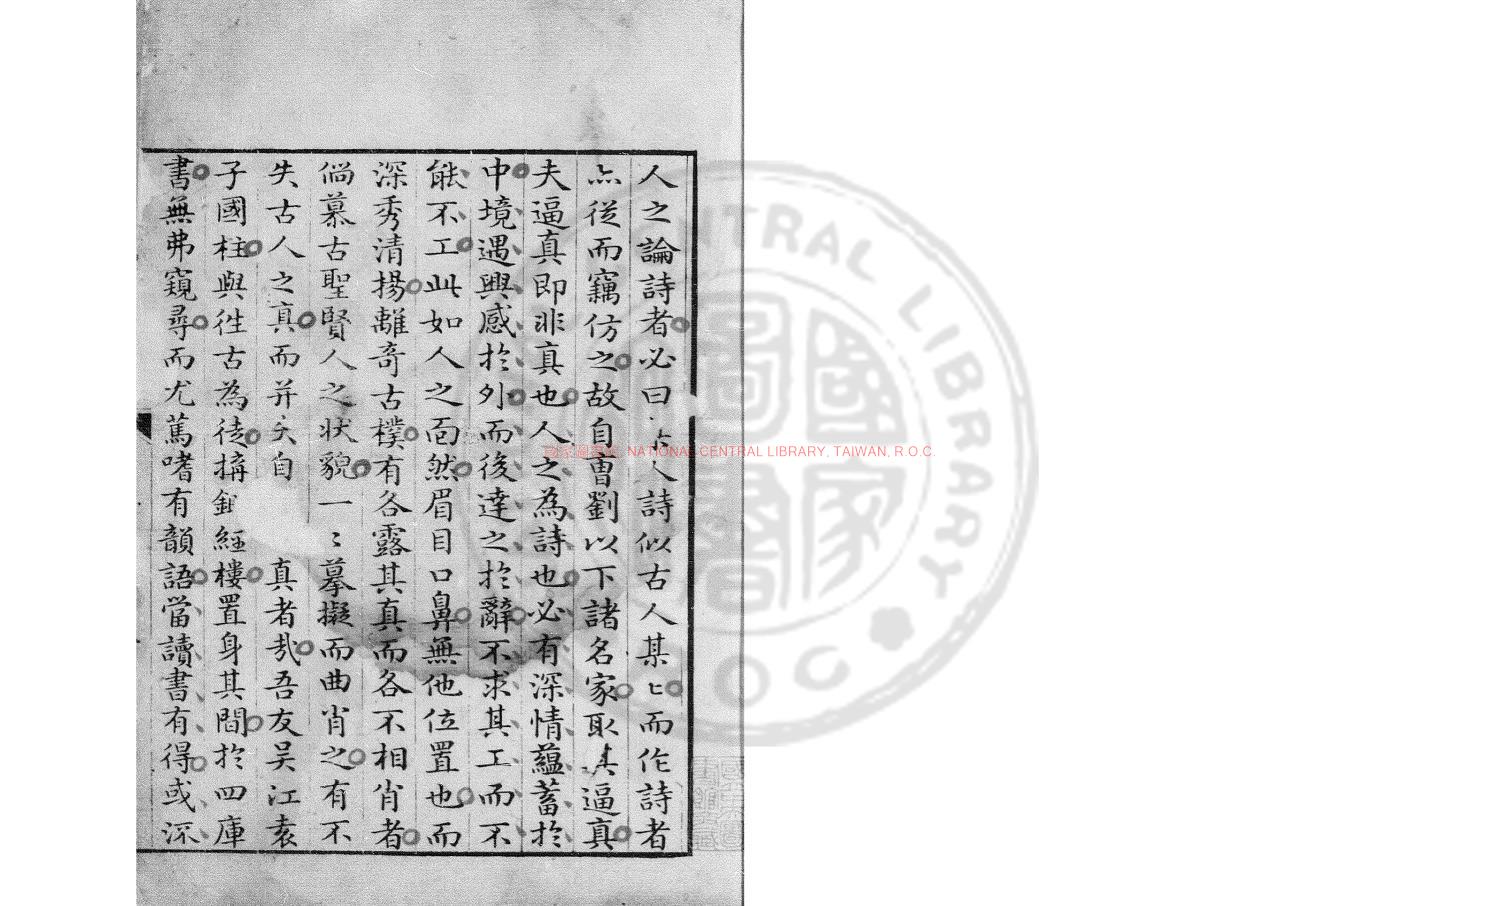 人之論詩者必曰人詩似古人某〻而作詩者
亦從而竊仿之故自曹劉以下諸名家取其逼真
夫逼真即非真也人之為詩也必有深情蘊蓄於
中境遇興感於外而後達之於辭不求其工而不
能不工此如人之面然眉目口鼻無他位置也而
深秀清揚離奇古樸有各露其真而各不相肖者
倘慕古聖賢人之狀貌一〻摹擬而曲肖之有不
失古人之真而并失自真者哉吾友吴江袁
子國柱與徃古為徒搆經樓置身其間於四庫
書無弗窺尋而尤篤嗜有韻語當讀書有得或深
國家圖書館, NATIONAL CENTRAL LIBRARY, TAIWAN, R.O.C.
CENTRAL LIBRARY
ROC
國家圖書